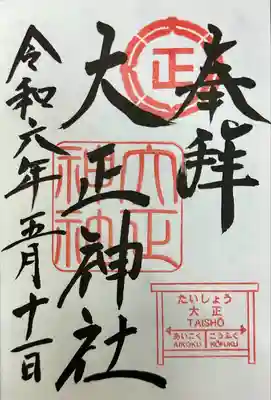 奉拝
正
大正神社
大正神社
令和六年五月十一日
たいしょう
大正
TAISHŌ
あいこく こうふく
AIKOKU KŌFUKU